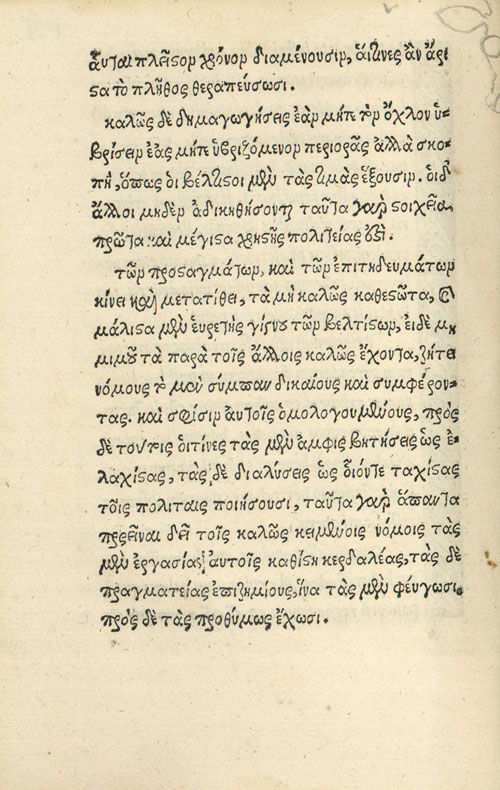 ἁυται πλεῖςον χρόνον διαμένουσιν, ἅιτινες ἂν ἄρι
ςα τὸ πλῆθος θεραπεύσωσι.
καλῶς δὲ δημαγωγήσεις ἐὰν μήτε τὸν ὄχλον ὑ-
βρίζειν ἐᾷς μήτε ὑβριζόμενον περιορᾷς ἀλλὰ σκο-
πῇ, ὅπως ὁι βέλτιςοι μὲν τὰς τιμὰς ἕξουσιν. ὁι δ'
ἄλλοι μηδὲν ἀδικηθήσονται ταῦτα γὰρ ςοιχεῖα
πρῶτα καὶ μέγιςα χρηςῆς πολιτείας ὅξι.
τῶν προςαγμάτων, καὶ τῶν ἐπιτηδευμάτων
κίνει καὶ μετατίθει, τὰ μὴ καλῶς καθεςῶτα, καὶ
μάλιςα μὲν ἑυρετὴς γίγνου τῶν βελτίςων, ἐι δὲ μὴ
μιμοῦ τὰ παρὰ τοῖς ἄλλοις καλῶς ἔχοντα, ζήτει
νόμους τὸ μὲν σύμπαν δικαίους καὶ συμφέρον-
τας. καὶ σφίσιν ἀυτοῖς ὁμολογουμένους, πρὸς
δὲ τούτοις ὁιτίνες τὰς μὲν ἀμφισβητήσεις ὡς ἐ-
λαχίςας, τὰς δὲ διαλύσεις ὡς ὁιόντε ταχίςας
τοῖς πολίταις ποιήσουσι, ταῦτα γὰρ ἅπαντα
προσεῖναι δεῖ τοῖς καλῶς κειμένοις νόμοις τὰς
μὲν ἐργασίας ἀυτοῖς καθίςη κερδαλέας, τὰς δὲ
πραγματείας ἐπιζημίους, ἵνα τὰς μὲν φέυγωσι.
πρὸς δὲ τὰς προθύμως ἔχωσι.